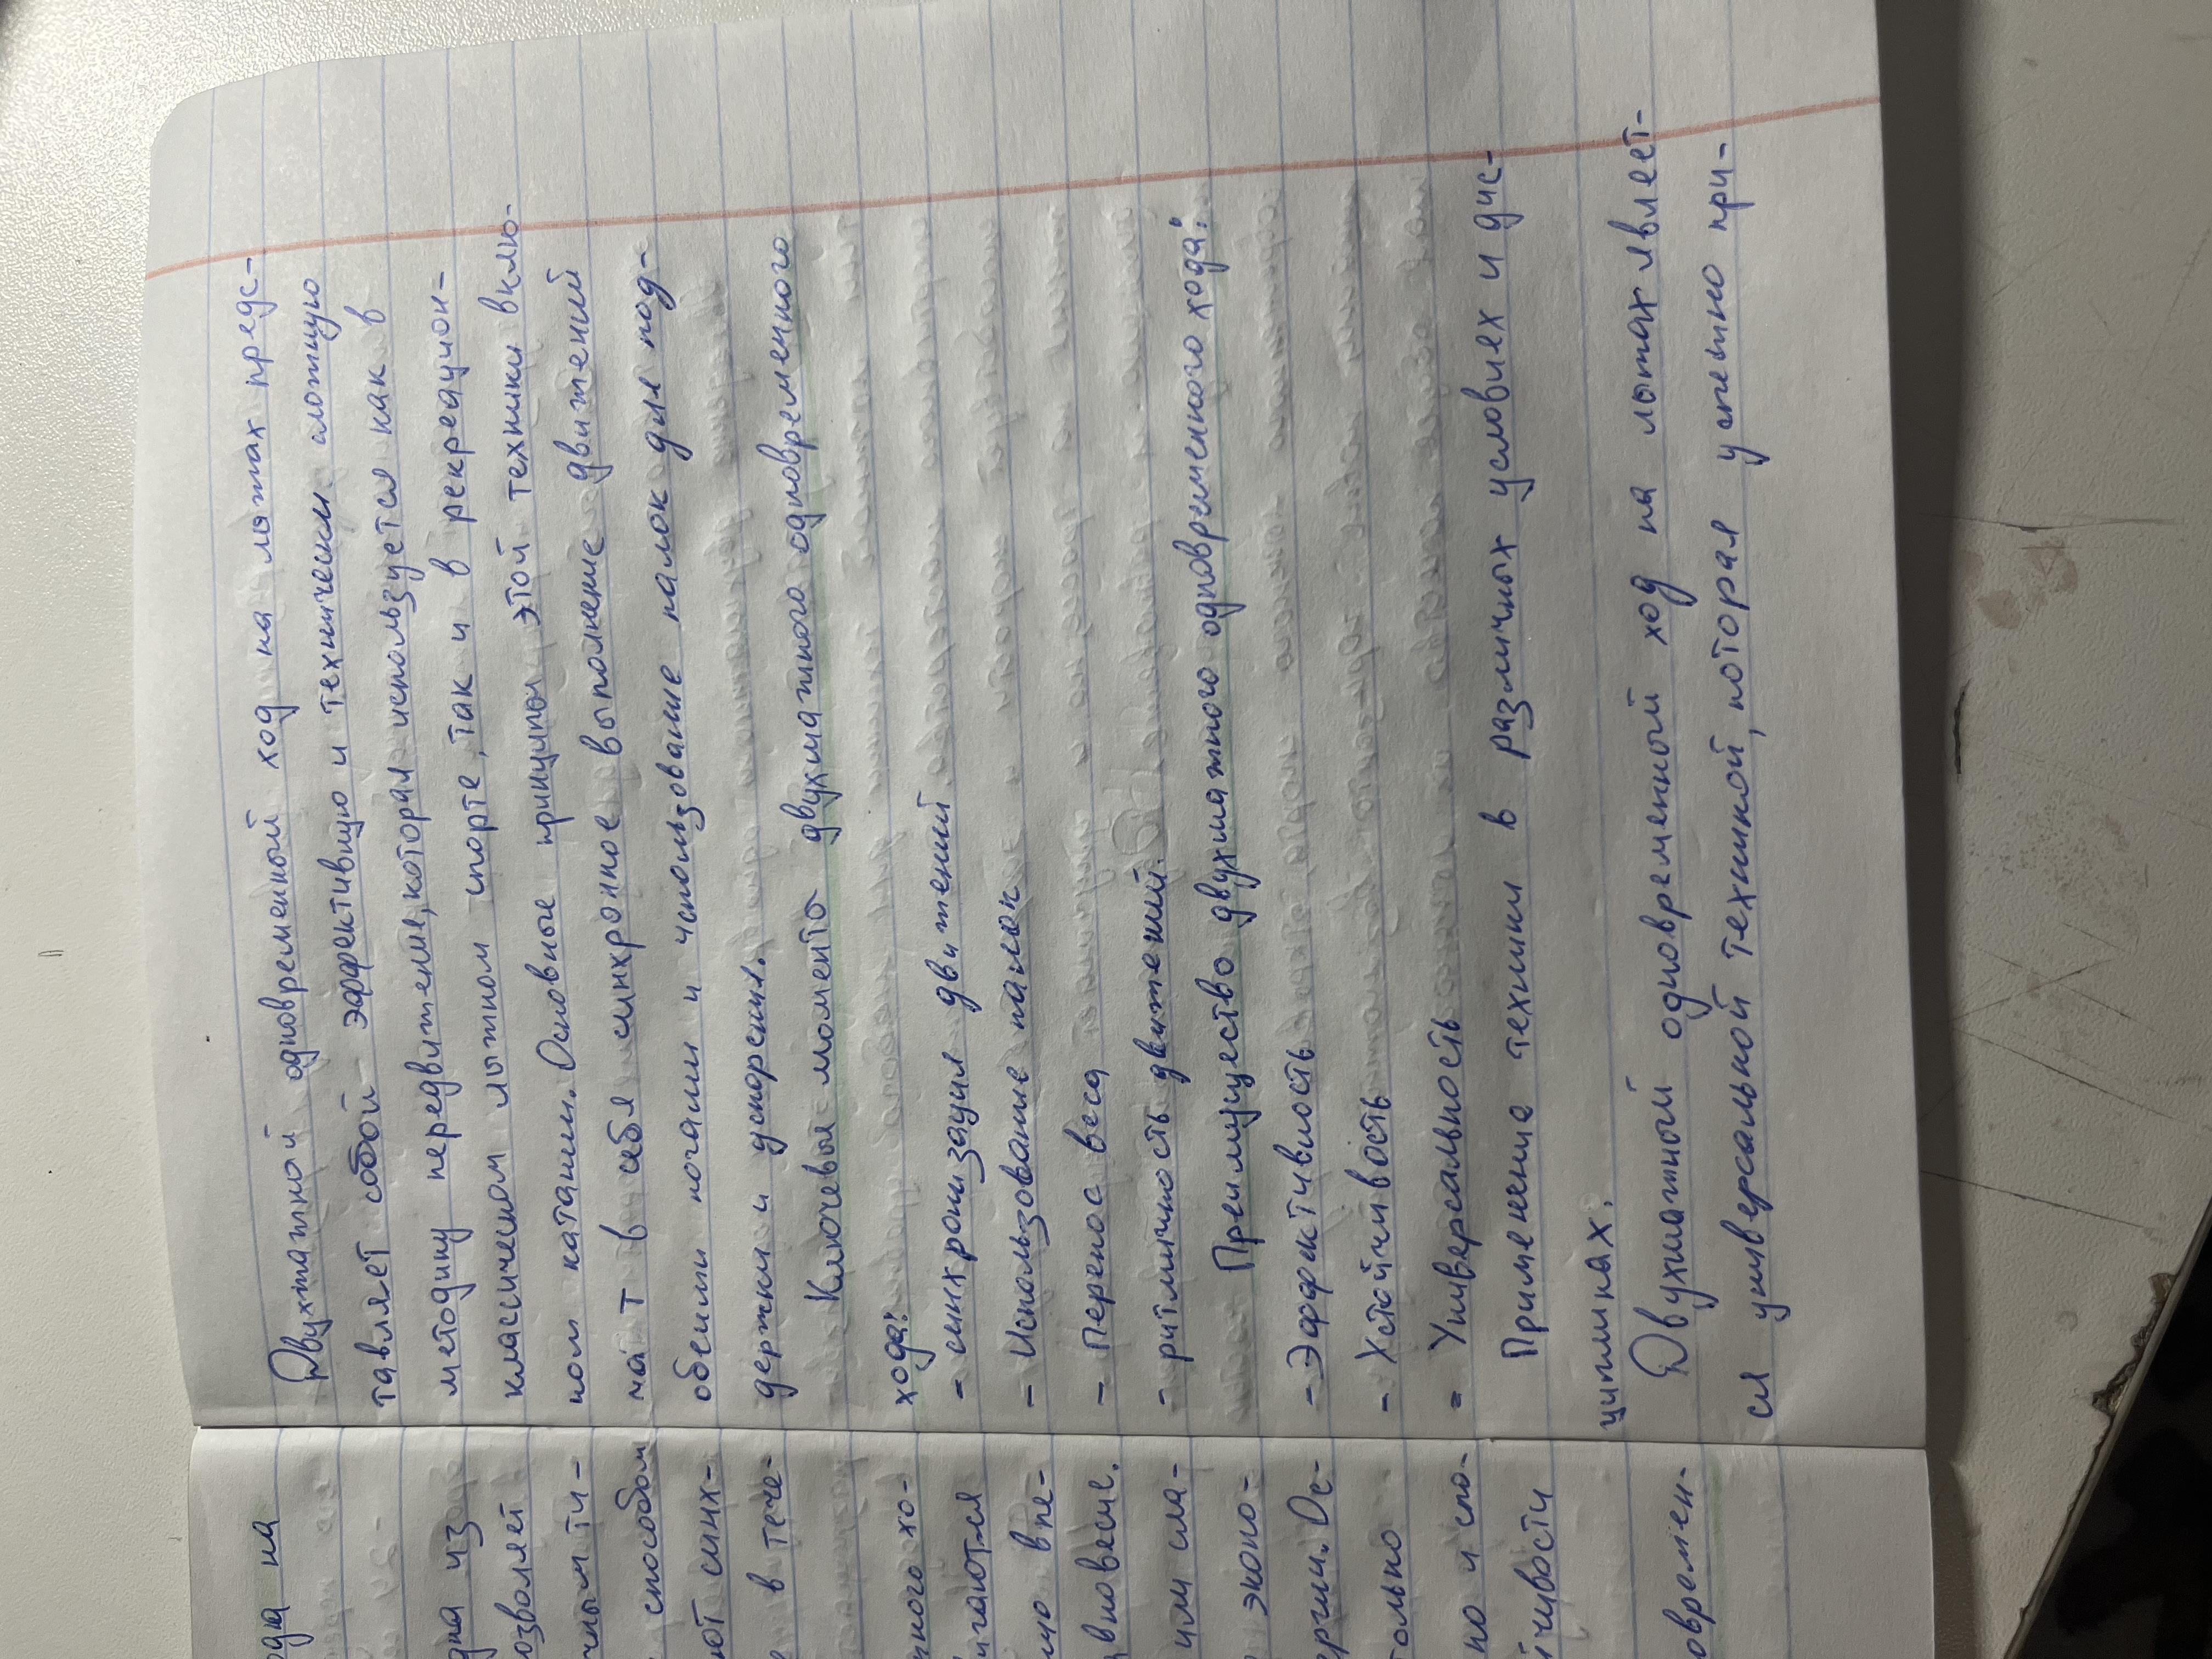 Двухтажной одновременный ход на лыжах предс-
тавляет собой эффективную и технически сложную
методику передвижение, которая используется как в
классическом лыжном спорте, так и в рекреацион-
ном катании. Основные принципы этой техники вклю-
чают в себя синхронное выполнение движений
обеими ногами и использование палок для под-
держки и ускорения.
Ключевые моменты двухшажного одновременного
хода:
- синхронизация движений
- Использование палок
- Перенос веса
- ритмичность движений.
Преимущество двухшажного одновременного хода:
- Эффективность
- Устойчивость
- Универсальность
Применение техники в различных условиях и дис-
циплинах.
Двухшажный одновременный ход на лыжах являет-
ся универсальной техникой, которая успешно при-
ода на
дна из
озволяет
способом
ют синх-
е в тече-
ного хо-
вновесие.
эконо-
ергии. Ос-
только
но и спо-
йчивости
овремен-